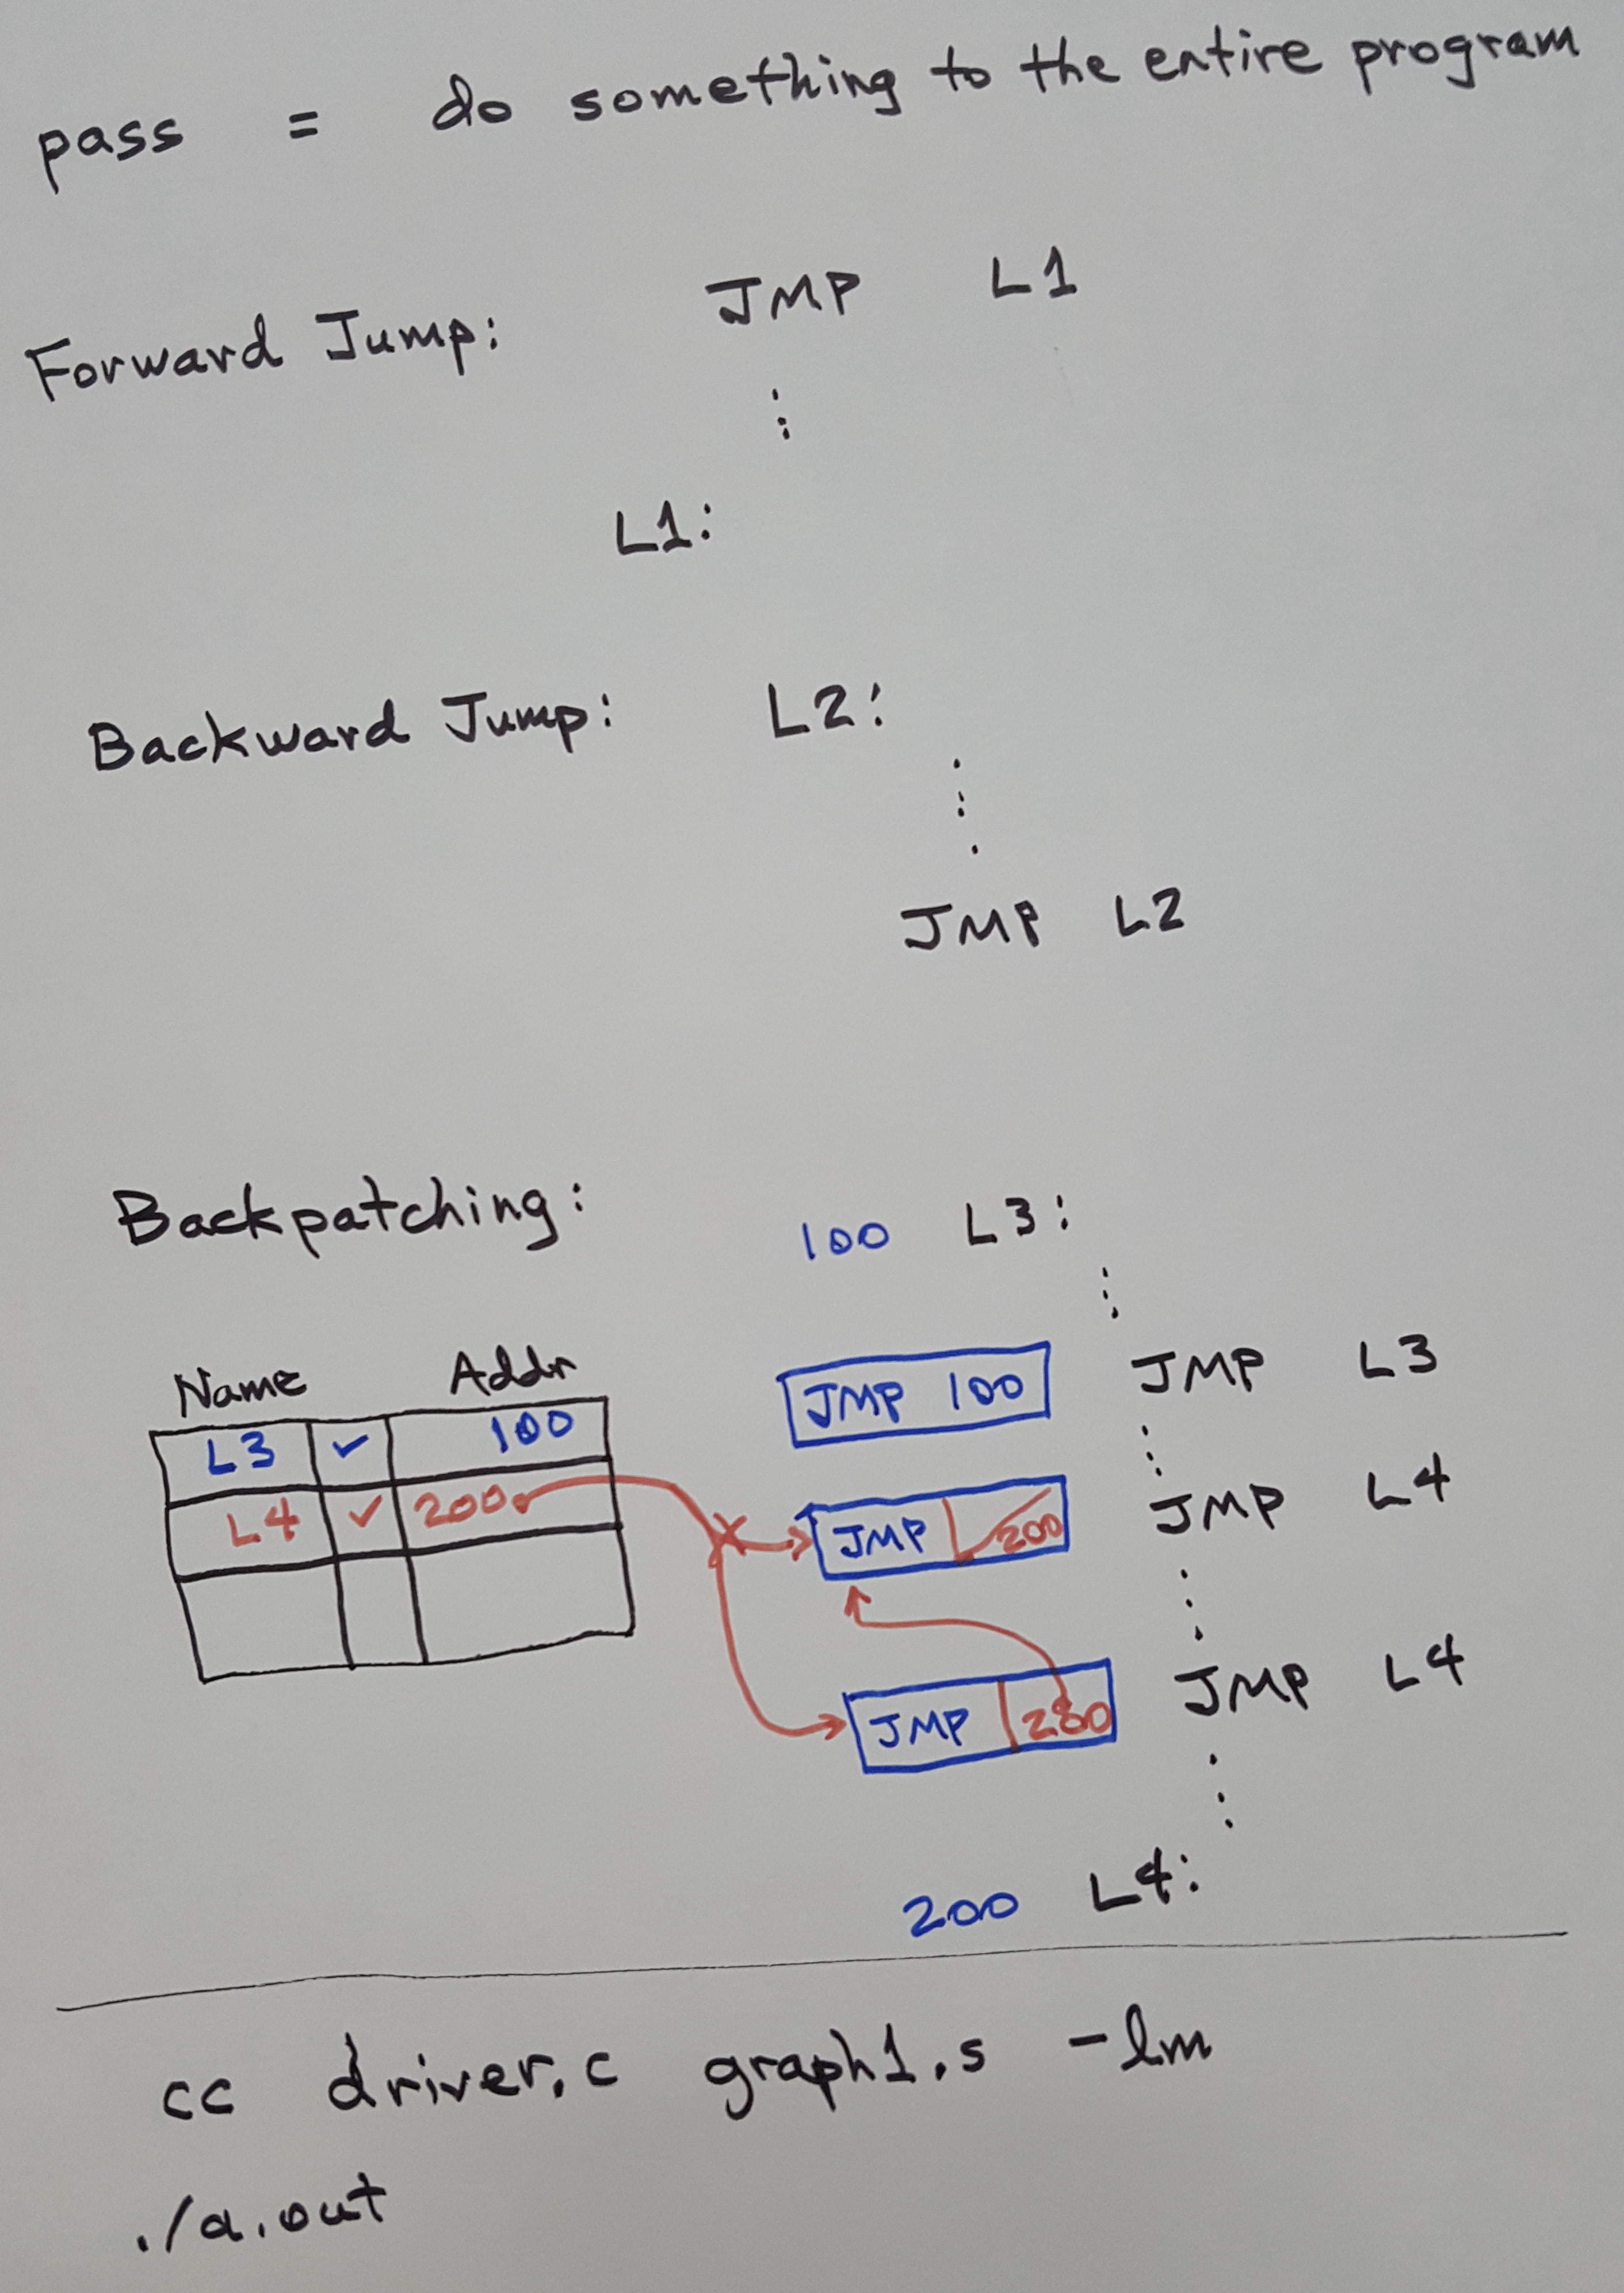 pass = do something to the entire program
Forward Jump: JMP L1
L1:
Backward Jump: L2:
JMP L2
Backpatching: 100 L3:
Name Addr
L3 ✓ 100 JMP 100 JMP L3
L4 ✓ 200 JMP 200 JMP L4
JMP 200 JMP L4
200 L4:
cc driver.c graph1.s -lm
./a.out